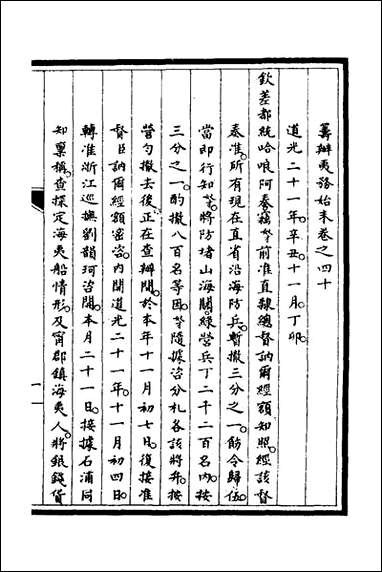 籌辦夷務始末卷之四十
道光二十一年。辛丑。十一月。丁卯。
欽差都統哈哴阿奏竊等前准直隸總督訥爾經額知照。經該督
奏准。所有現在直省沿海防兵。暫撤三分之一。飭令歸伍。
當即行知等將防堵山海關。綠營兵丁二千二百名內。按
三分之一。酌撤八百名等因。等隨據咨分札各該將弁。按
營勻撤去後。正在查辦間。於本年十一月初七日。復接准
督臣訥爾經額密咨。內開道光二十一年。十一月初四日。
轉准浙江巡撫劉韻珂咨開。本月二十一日。接據石浦同
知稟稱。查探定海夷船情形。及甯郡鎮海夷人。將銀錢貨
一